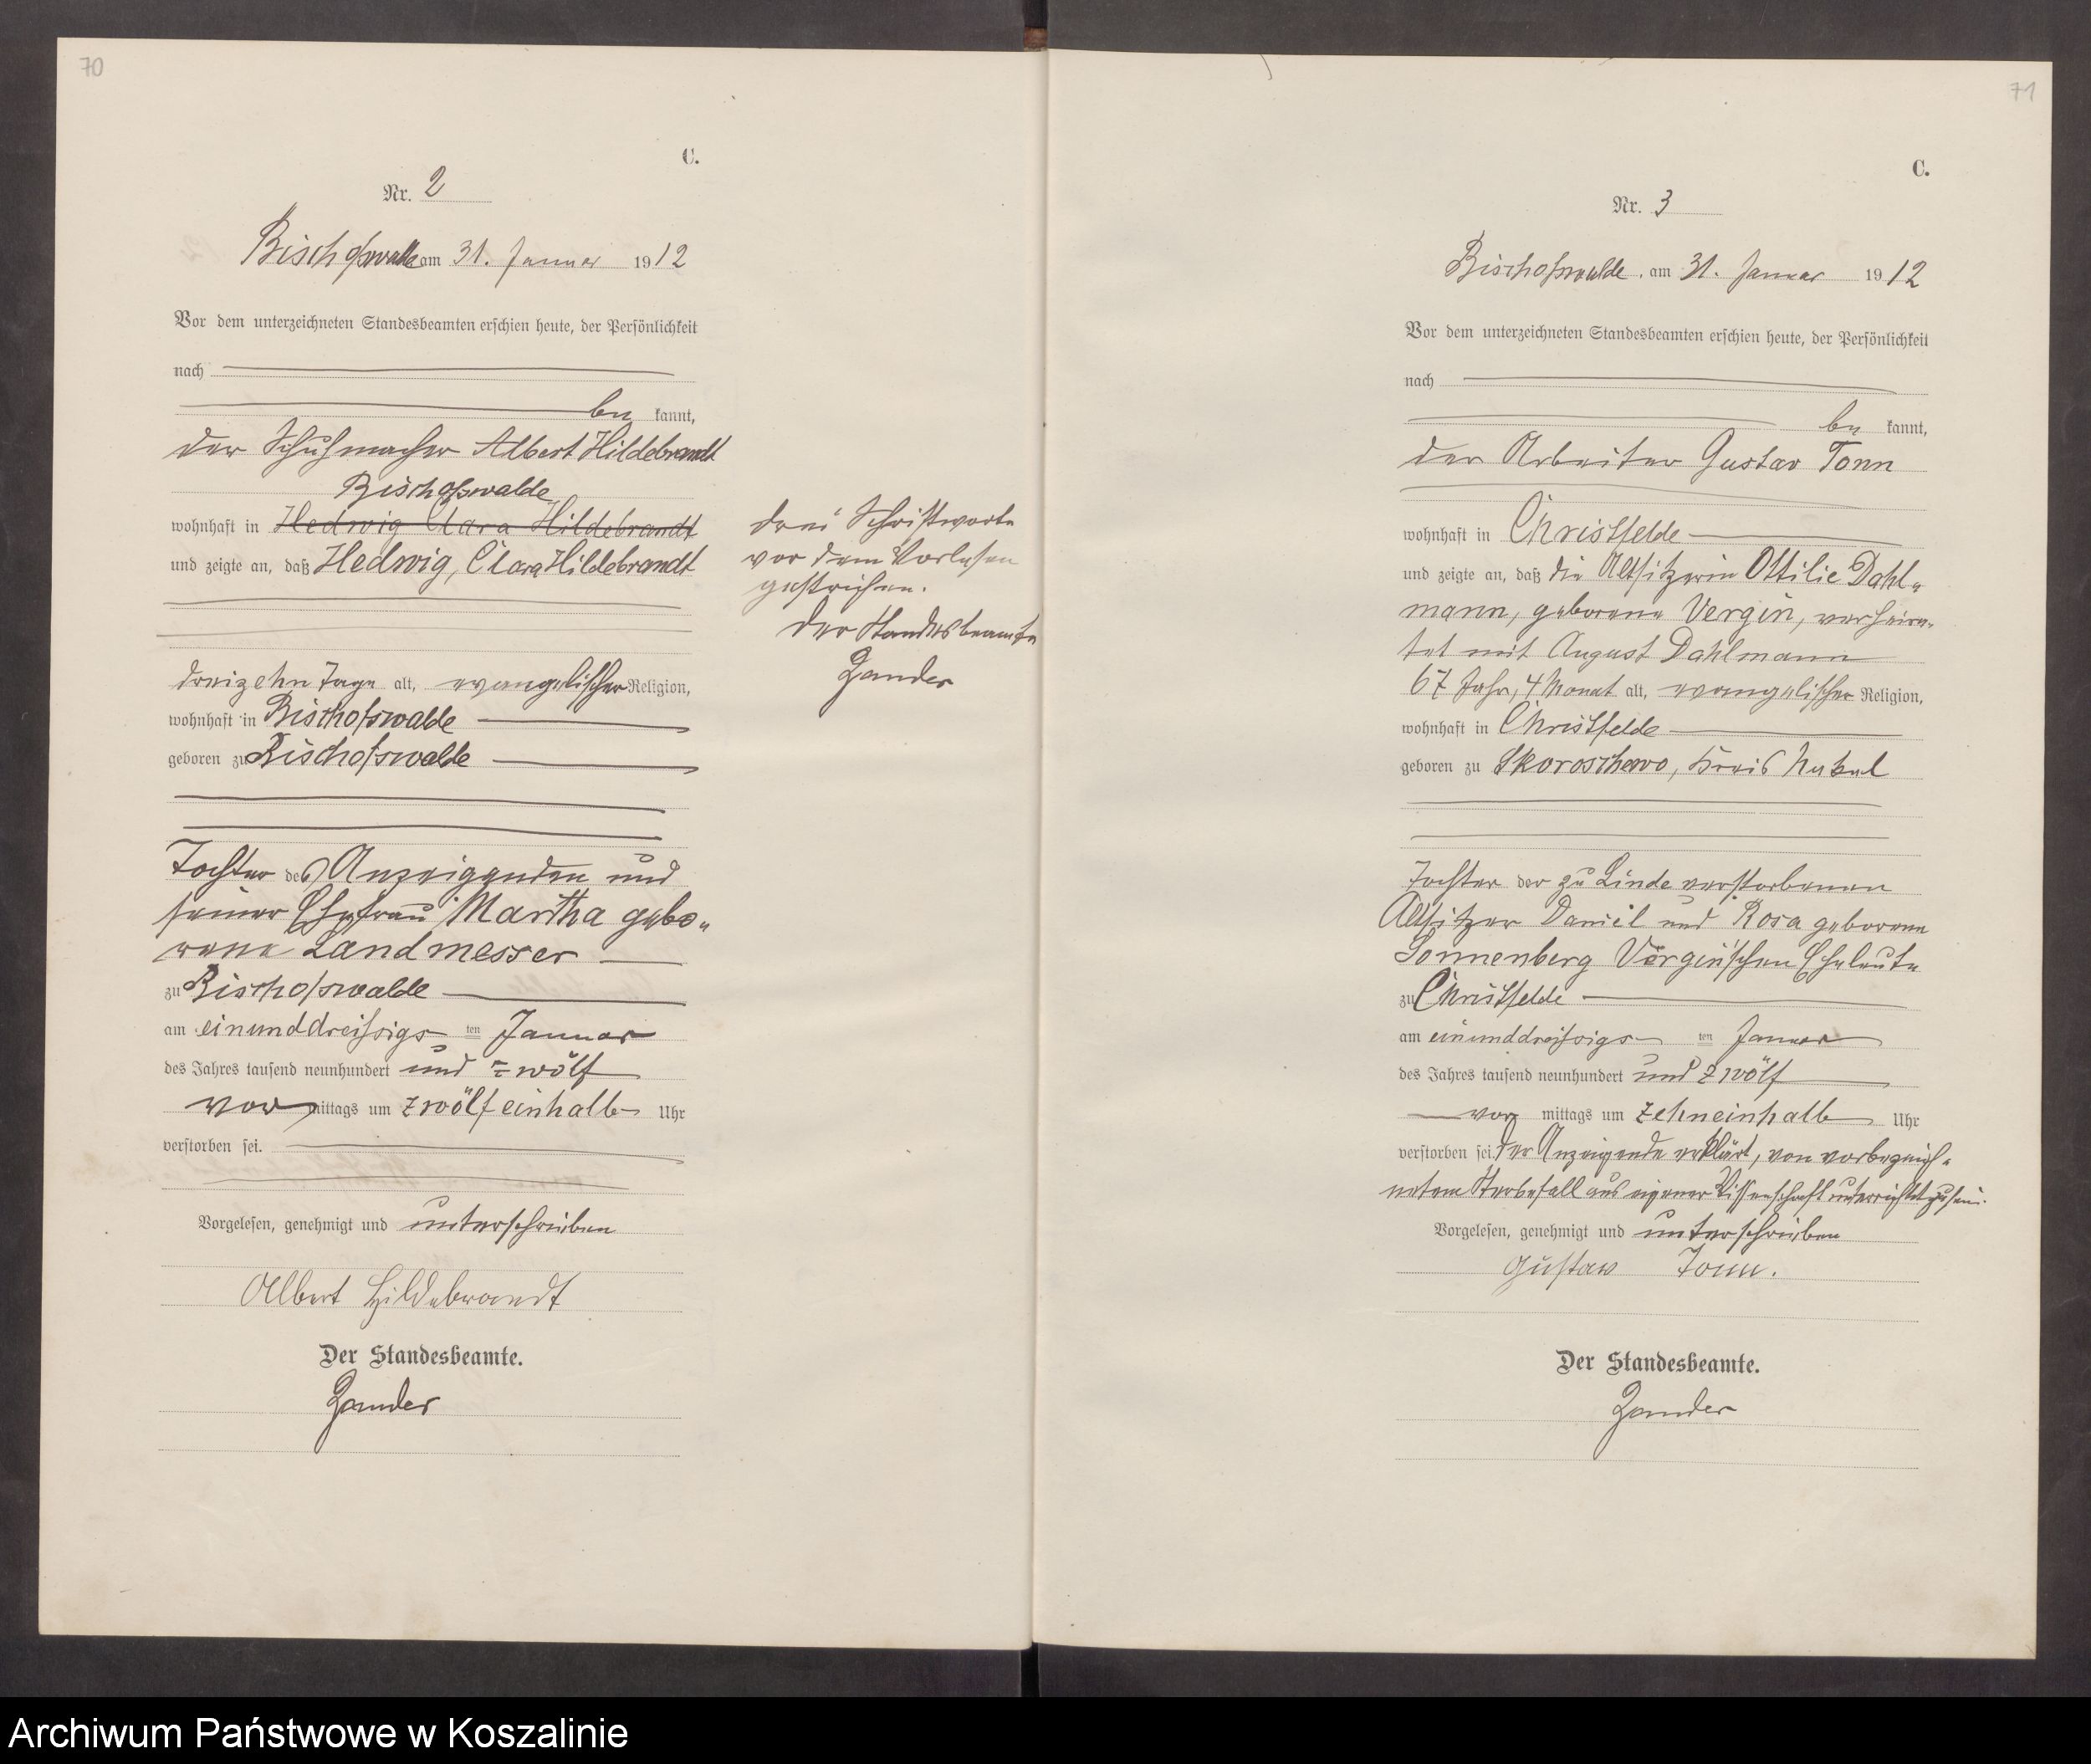 70
C.
Nr. 2
Bischofswalde am 31. Januar 1912
Vor dem unterzeichneten Standesbeamten erschien heute, der Persönlichkeit
nach
be kannt,
der Schuhmacher Albert Hildebrandt
Bischofswalde
wohnhaft in Hedwig Clara Hildebrandt
und zeigte an, daß Hedwig, Clara Hildebrandt
dreizehn Tage alt, evangelischer Religion,
wohnhaft in Bischofswalde
geboren zu Bischofswalde
Tochter des Anzeigenden und
seiner Ehefrau Martha gebo„
rene Landmesser
zu Bischofswalde
am einunddreißigs ten Januar
des Jahres tausend neunhundert und zwölf
vor mittags um zwölfeinhalb Uhr
verstorben sei.
Vorgelesen, genehmigt und unterschrieben
Albert Hildebrandt
Der Standesbeamte.
Zander
drei Schriftworte
vor dem Vorlesen
gestrichen.
Der Standesbeamte
Zander
71
C.
Nr. 3
Bischofswalde, am 31. Januar 1912
Vor dem unterzeichneten Standesbeamten erschien heute, der Persönlichkeit
nach
be kannt,
der Arbeiter Gustav Tonn
wohnhaft in Christfelde
und zeigte an, daß die Altsitzerin Ottilie Dahl„
mann, geborene Vergin, verheira„
tet mit August Dahlmann
67 Jahr, 4 Monat alt, evangelischer Religion,
wohnhaft in Christfelde
geboren zu Skoroschewo, Kreis Nakel
Tochter der zu Linde verstorbenen
Altsitzer Daniel und Rosa geborene
Sonnenberg Vergin'schen Eheleute
zu Christfelde
am einunddreißigs ten Januar
des Jahres tausend neunhundert und zwölf
vor mittags um zehneinhalb Uhr
verstorben sei. Der Anzeigende erklärt, von vorbezeich„
netem Sterbefall aus eigener Wissenschaft unterrichtet zu sein.
Vorgelesen, genehmigt und unterschrieben
Gustav Tonn.
Der Standesbeamte.
Zander
Archiwum Państwowe w Koszalinie